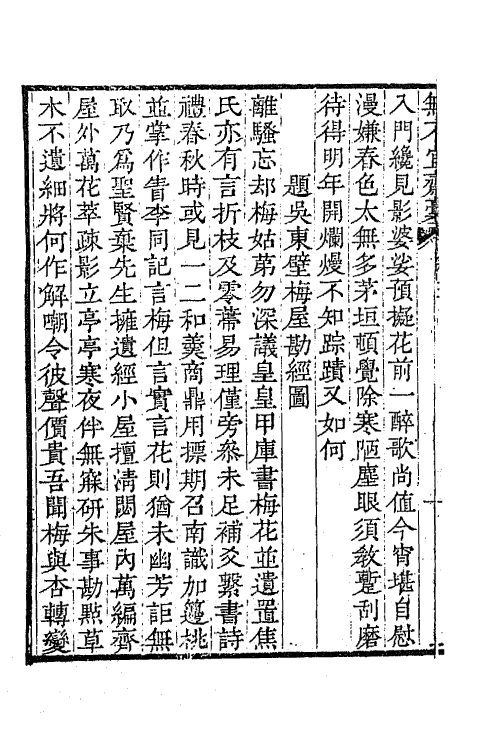 無不宜齋
入門纔見影婆娑預擬花前一醉歌尚值今宵堪自慰
漫嫌春色太無多茅垣頓覺除寒陋塵眼須教蹔刮磨
待得明年開爛熳不知踪蹟又如何
題吳東壁梅屋勘經圖
離騷忘却梅姑第勿深議皇皇甲庫書梅花並遺置焦
氏亦有言折枝及零蒂易理僅旁叅未足補爻繫書詩
禮春秋時或見一二和羹商鼎用摽期召南識加籩桃
並掌作眚李同記言梅但言實言花則猶未幽芳詎無
取乃爲聖賢棄先生擁遺經小屋擅清閟屋內萬編齊
屋外萬花萃疎影立亭亭寒夜伴無寐研朱事勘點草
木不遺細將何作解嘲令彼聲價貴吾聞梅與杏轉變